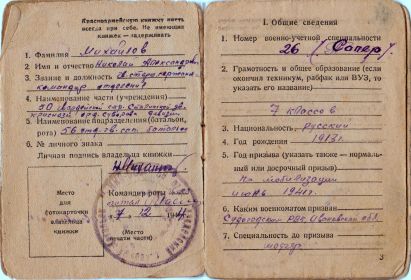 Красноармейскую книжку иметь
всегда при себе. Не имеющих
книжек — задерживать
1. Фамилия Михайлов
2. Имя и отчество Николай Александрович
3. Звание и должность
командир отделения
4. Наименование части (учреждения)
90 гвардейской
5. Наименование подразделения (батальон,
рота) 56 отд. гв. сап. батальон
6. № личного знака
Личная подпись владельца книжки
Место
для
фотокарточки
владельца
книжки
Командир роты
7 12 194
(Место
печати части)
I. Общие сведения
1. Номер военно-учетной специальности
26 (Сапер)
2. Грамотность и общее образование (если
окончил техникум, рабфак или ВУЗ, то
указать его название)
7 классов
3. Национальность русский
4. Год рождения 1913г.
5. Год призыва (указать также — нормаль-
ный или досрочный призыв)
По мобилизации
1941г.
6. Каким военкоматом призван
Судогодский РВК, Ивановской обл.
7. Специальность до призыва
3